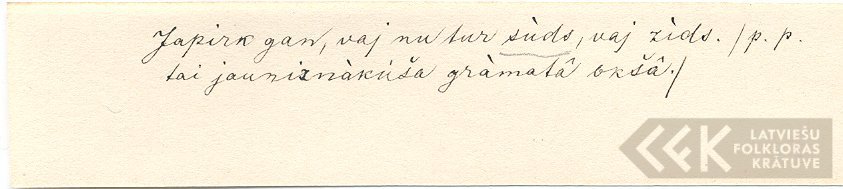 Japirk gan, vaj nu tur sùds, vaj zìds. /p. p.
tai jauniznàkúša gràmatâ okšâ./
LFK
LATVIEŠU
FOLKLORAS
KRĀTUVE